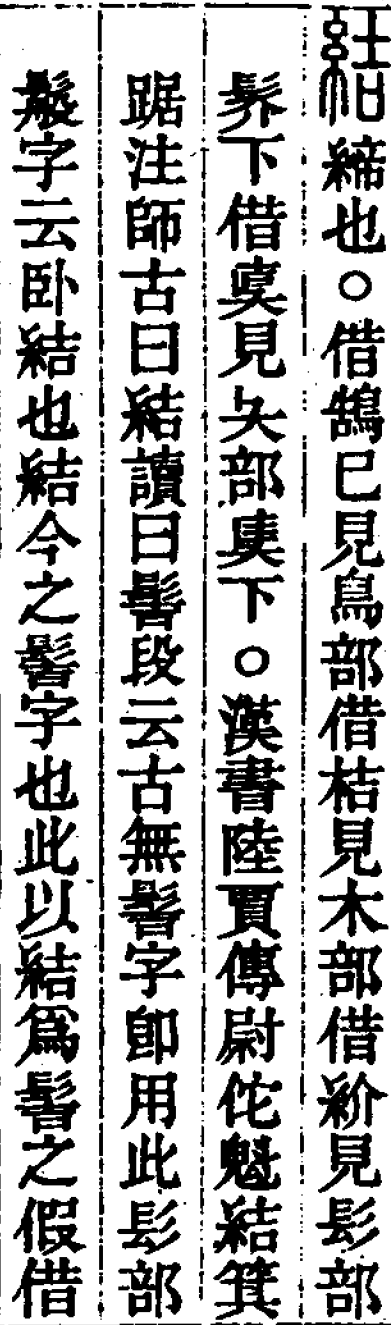 結締也○借鵠已見鳥部借桔見木部借紒見髟部
䯰下借奊見夨部奊下○漢書陸賈傳尉佗魋結箕
踞注師古曰結讀曰髻段云古無髻字卽用此髟部
䰉字云卧結也結今之髻字也此以結爲髻之假借